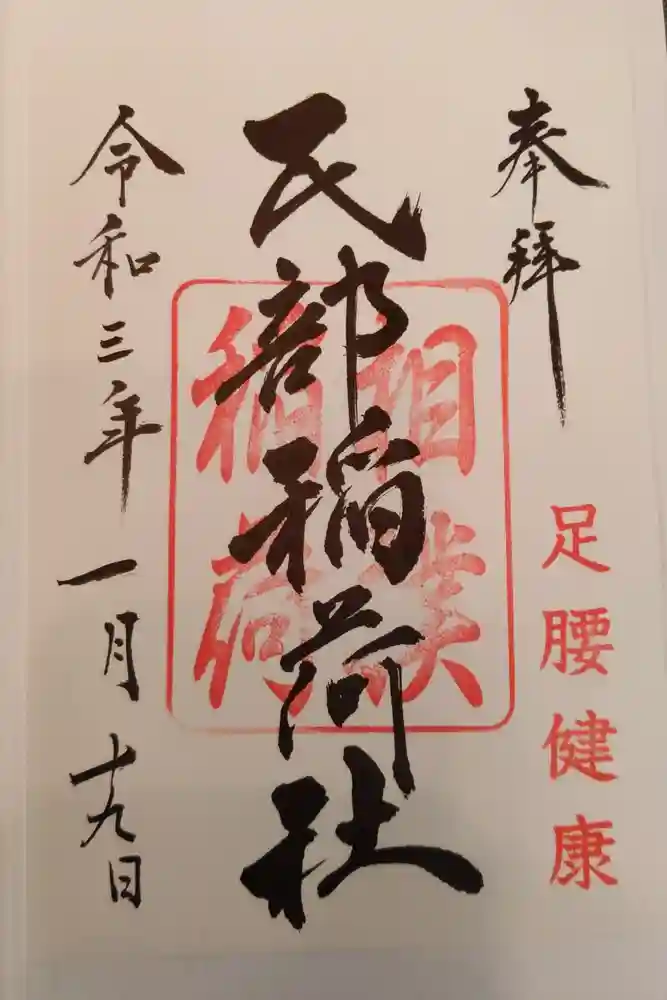 奉拝
足腰健康
民部稲荷社
相撲
稲荷
令和三年一月十九日